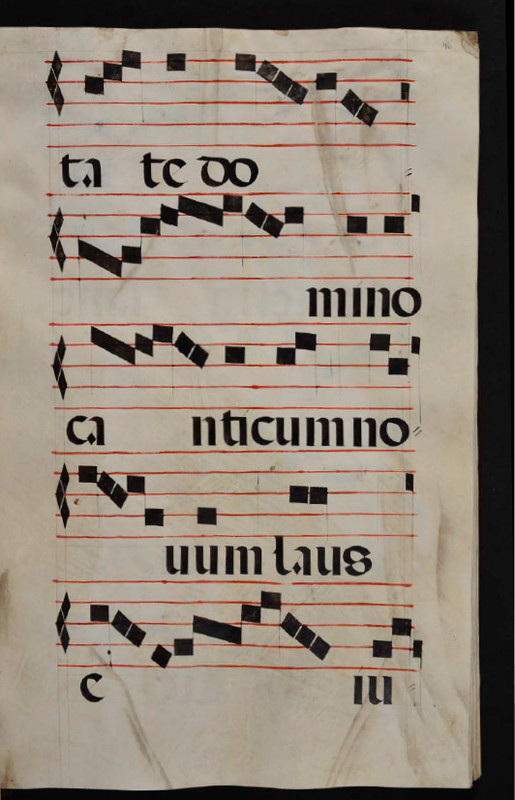 ta te do
mino
ca nticum no
uum laus
e iu